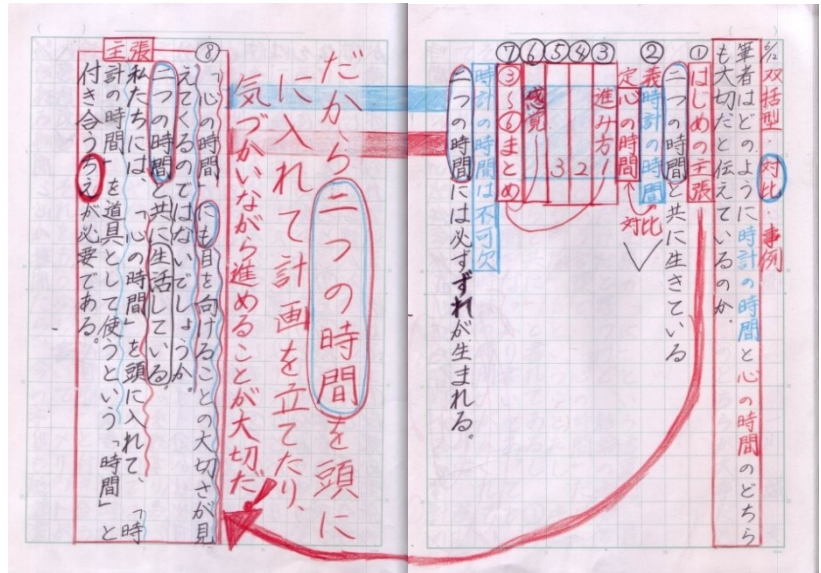 6/12 双括型・対比・事例
筆者はどのように時計の時間と心の時間のどちら
も大切だと伝えているのか。
①はじめの主張
二つの時間と共に生きている
②時計の時間
定義
心の時間
対比
③進み方1
④2
⑤3
⑥感覚
⑦③〜⑥まとめ
時計の時間は不可欠
二つの時間には必ずずれが生まれる。
だから二つの時間を頭に
に入れて計画を立てたり、
気づかいながら進めることが大切だ!
⑧「心の時間」にも目を向けることの大切さが見
えてくるのではないでしょうか。
二つの時間と共に生活している
主張
私たちには、「心の時間」を頭に入れて、「時
計の時間」を道具として使うという「時間」と
付き合うちえが必要である。